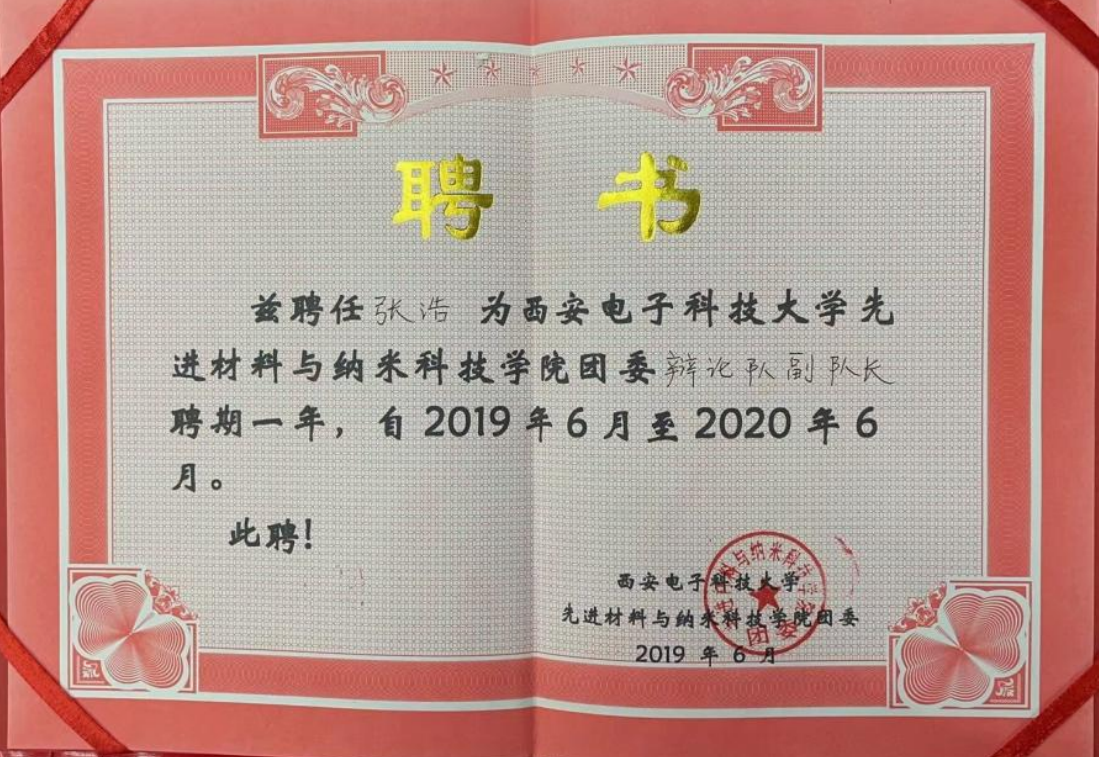 聘 书
兹聘任张浩 为西安电子科技大学先
进材料与纳米科技学院团委辩论队副队长
聘期一年，自 2019 年 6 月至 2020 年 6
月。
此聘！
西安电子科技大学
先进材料与纳米科技学院团委
2019 年 6 月